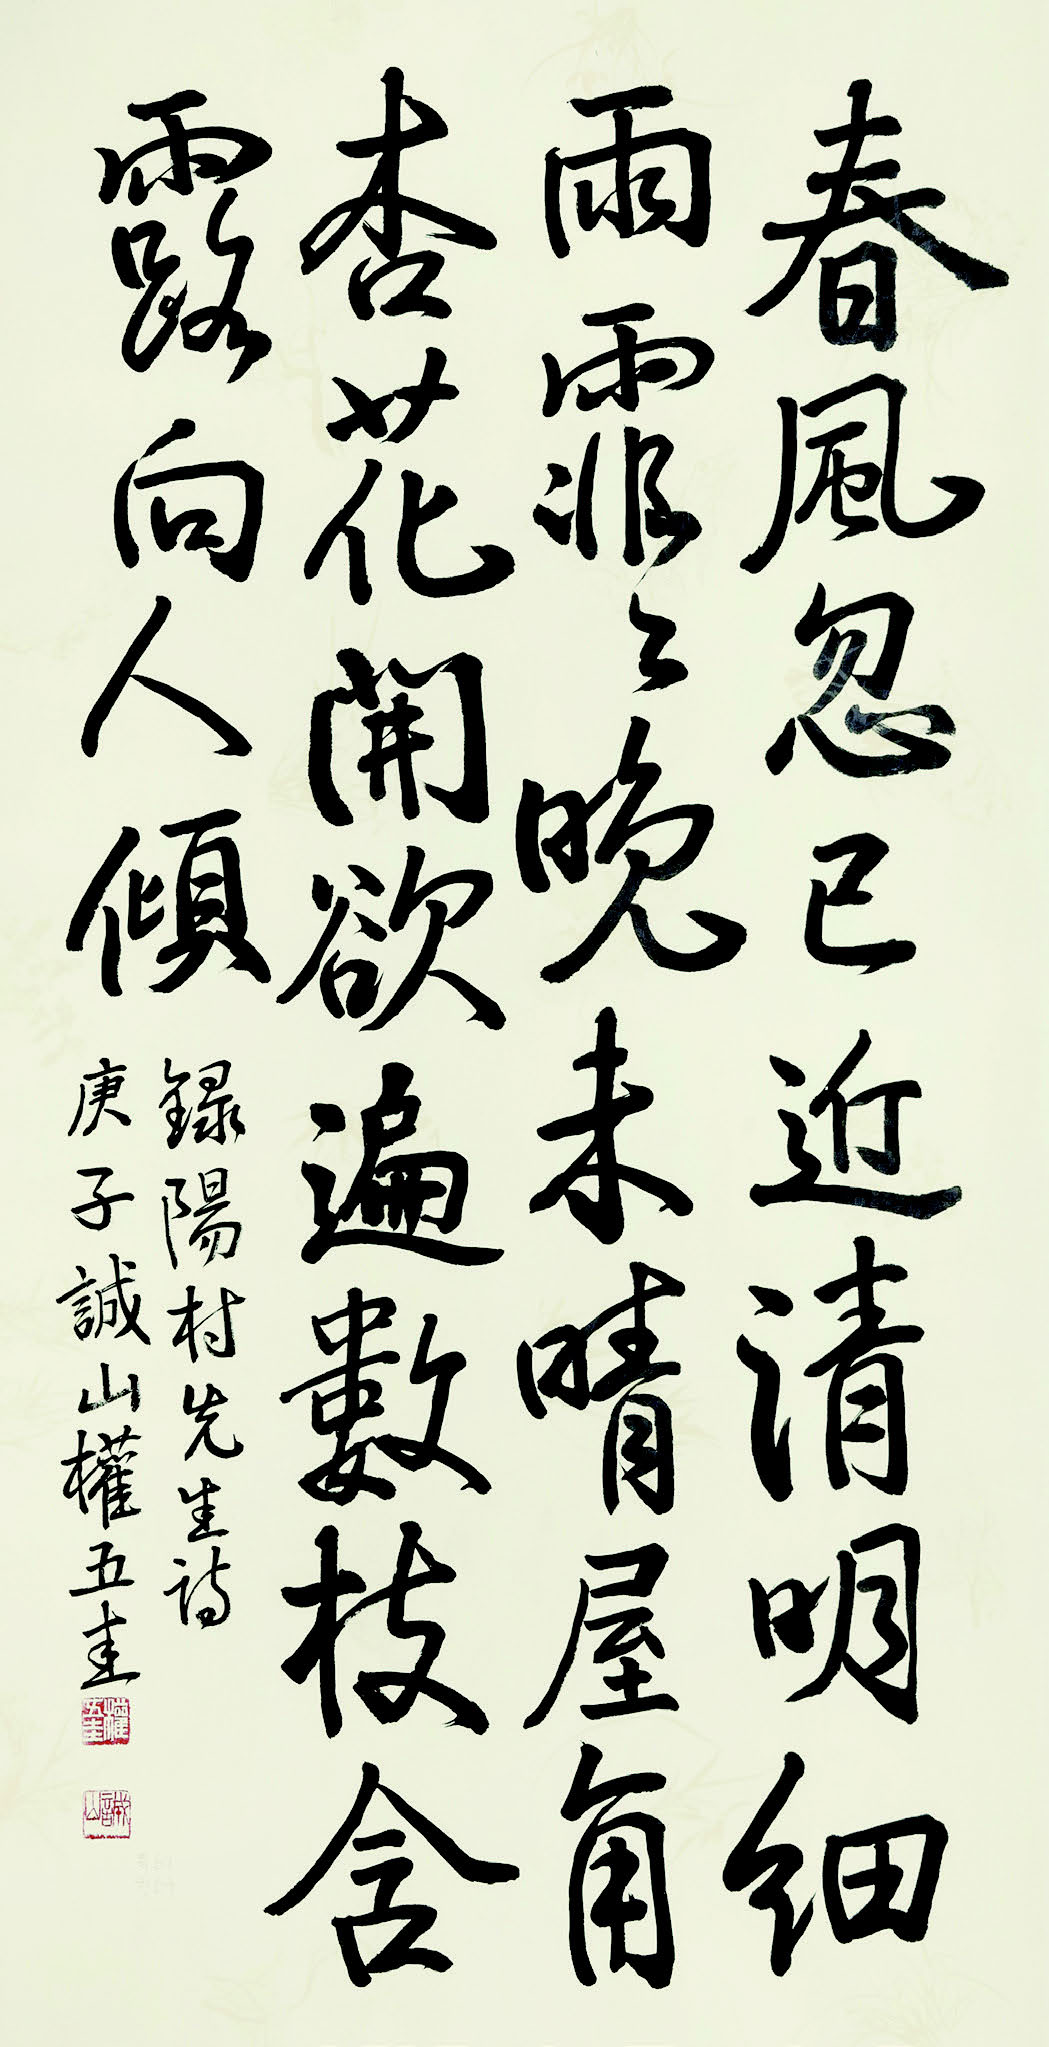 春風忽已近清明細
雨霏〻晚未晴屋角
杏花開欲遍數枝含
露向人傾
錄陽村先生詩
庚子誠山權五圭
權五圭
誠山